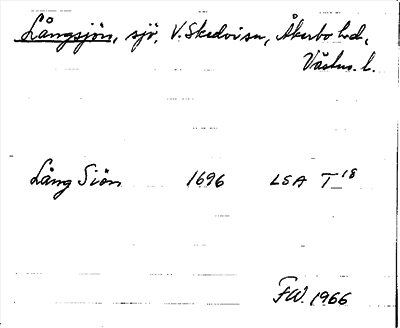 Långsjön, sjö, V. Skedvi sn, Åkerbo hd,
Västm. l.
Lång Siön 1696 LSA T 18
FW. 1966